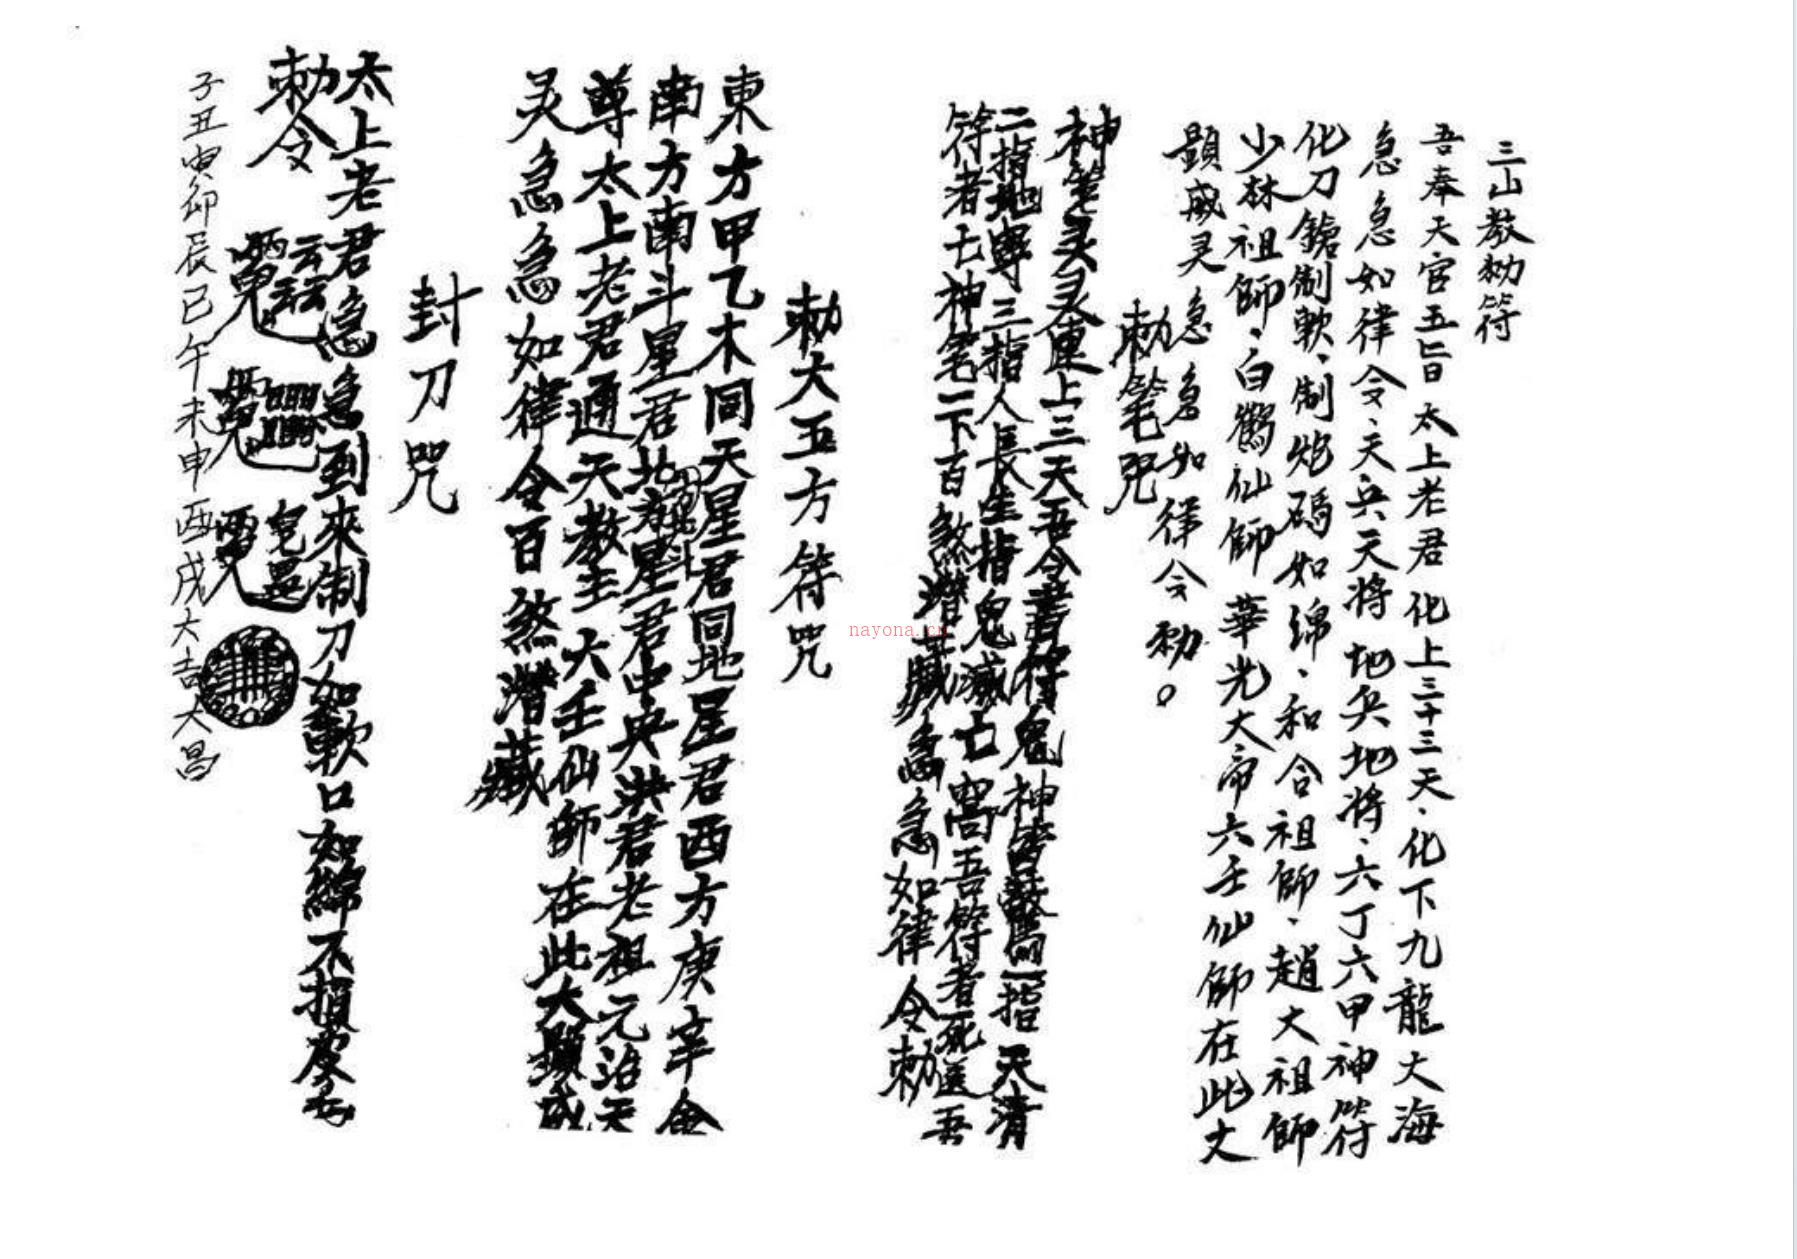 三山教勅符
吾奉天官五旨太上老君化上三十三天、化下九龍大海
急急如律令、天兵天將地兵地將、六丁六甲神符
化刀鎗制軟、制炮碼如綿、和合祖師、趙大祖師
少林祖師、白鶴仙師華光大帝六壬仙師在此大
顕威灵急急如律令勅。
勅笔咒
神笔灵灵連上三天吾令書符鬼神皆驚一指天清
二指地寧三指人長生指鬼滅亡吾符者死医吾
符者七神笔一下百煞潜藏急急如律令勅
勅大五方符咒
東方甲乙木同天星君同地星君西方庚辛金
南方南斗星君北方星君中央洪君老祖元治天
尊太上老君通天教主六壬仙師在此大顕威
灵急急如律令百煞潜藏
封刀咒
太上老君急急到來制刀如軟口如綿不損皮毛
勅令
子丑寅卯辰巳午未申酉戌大吉大昌
nayona.cn